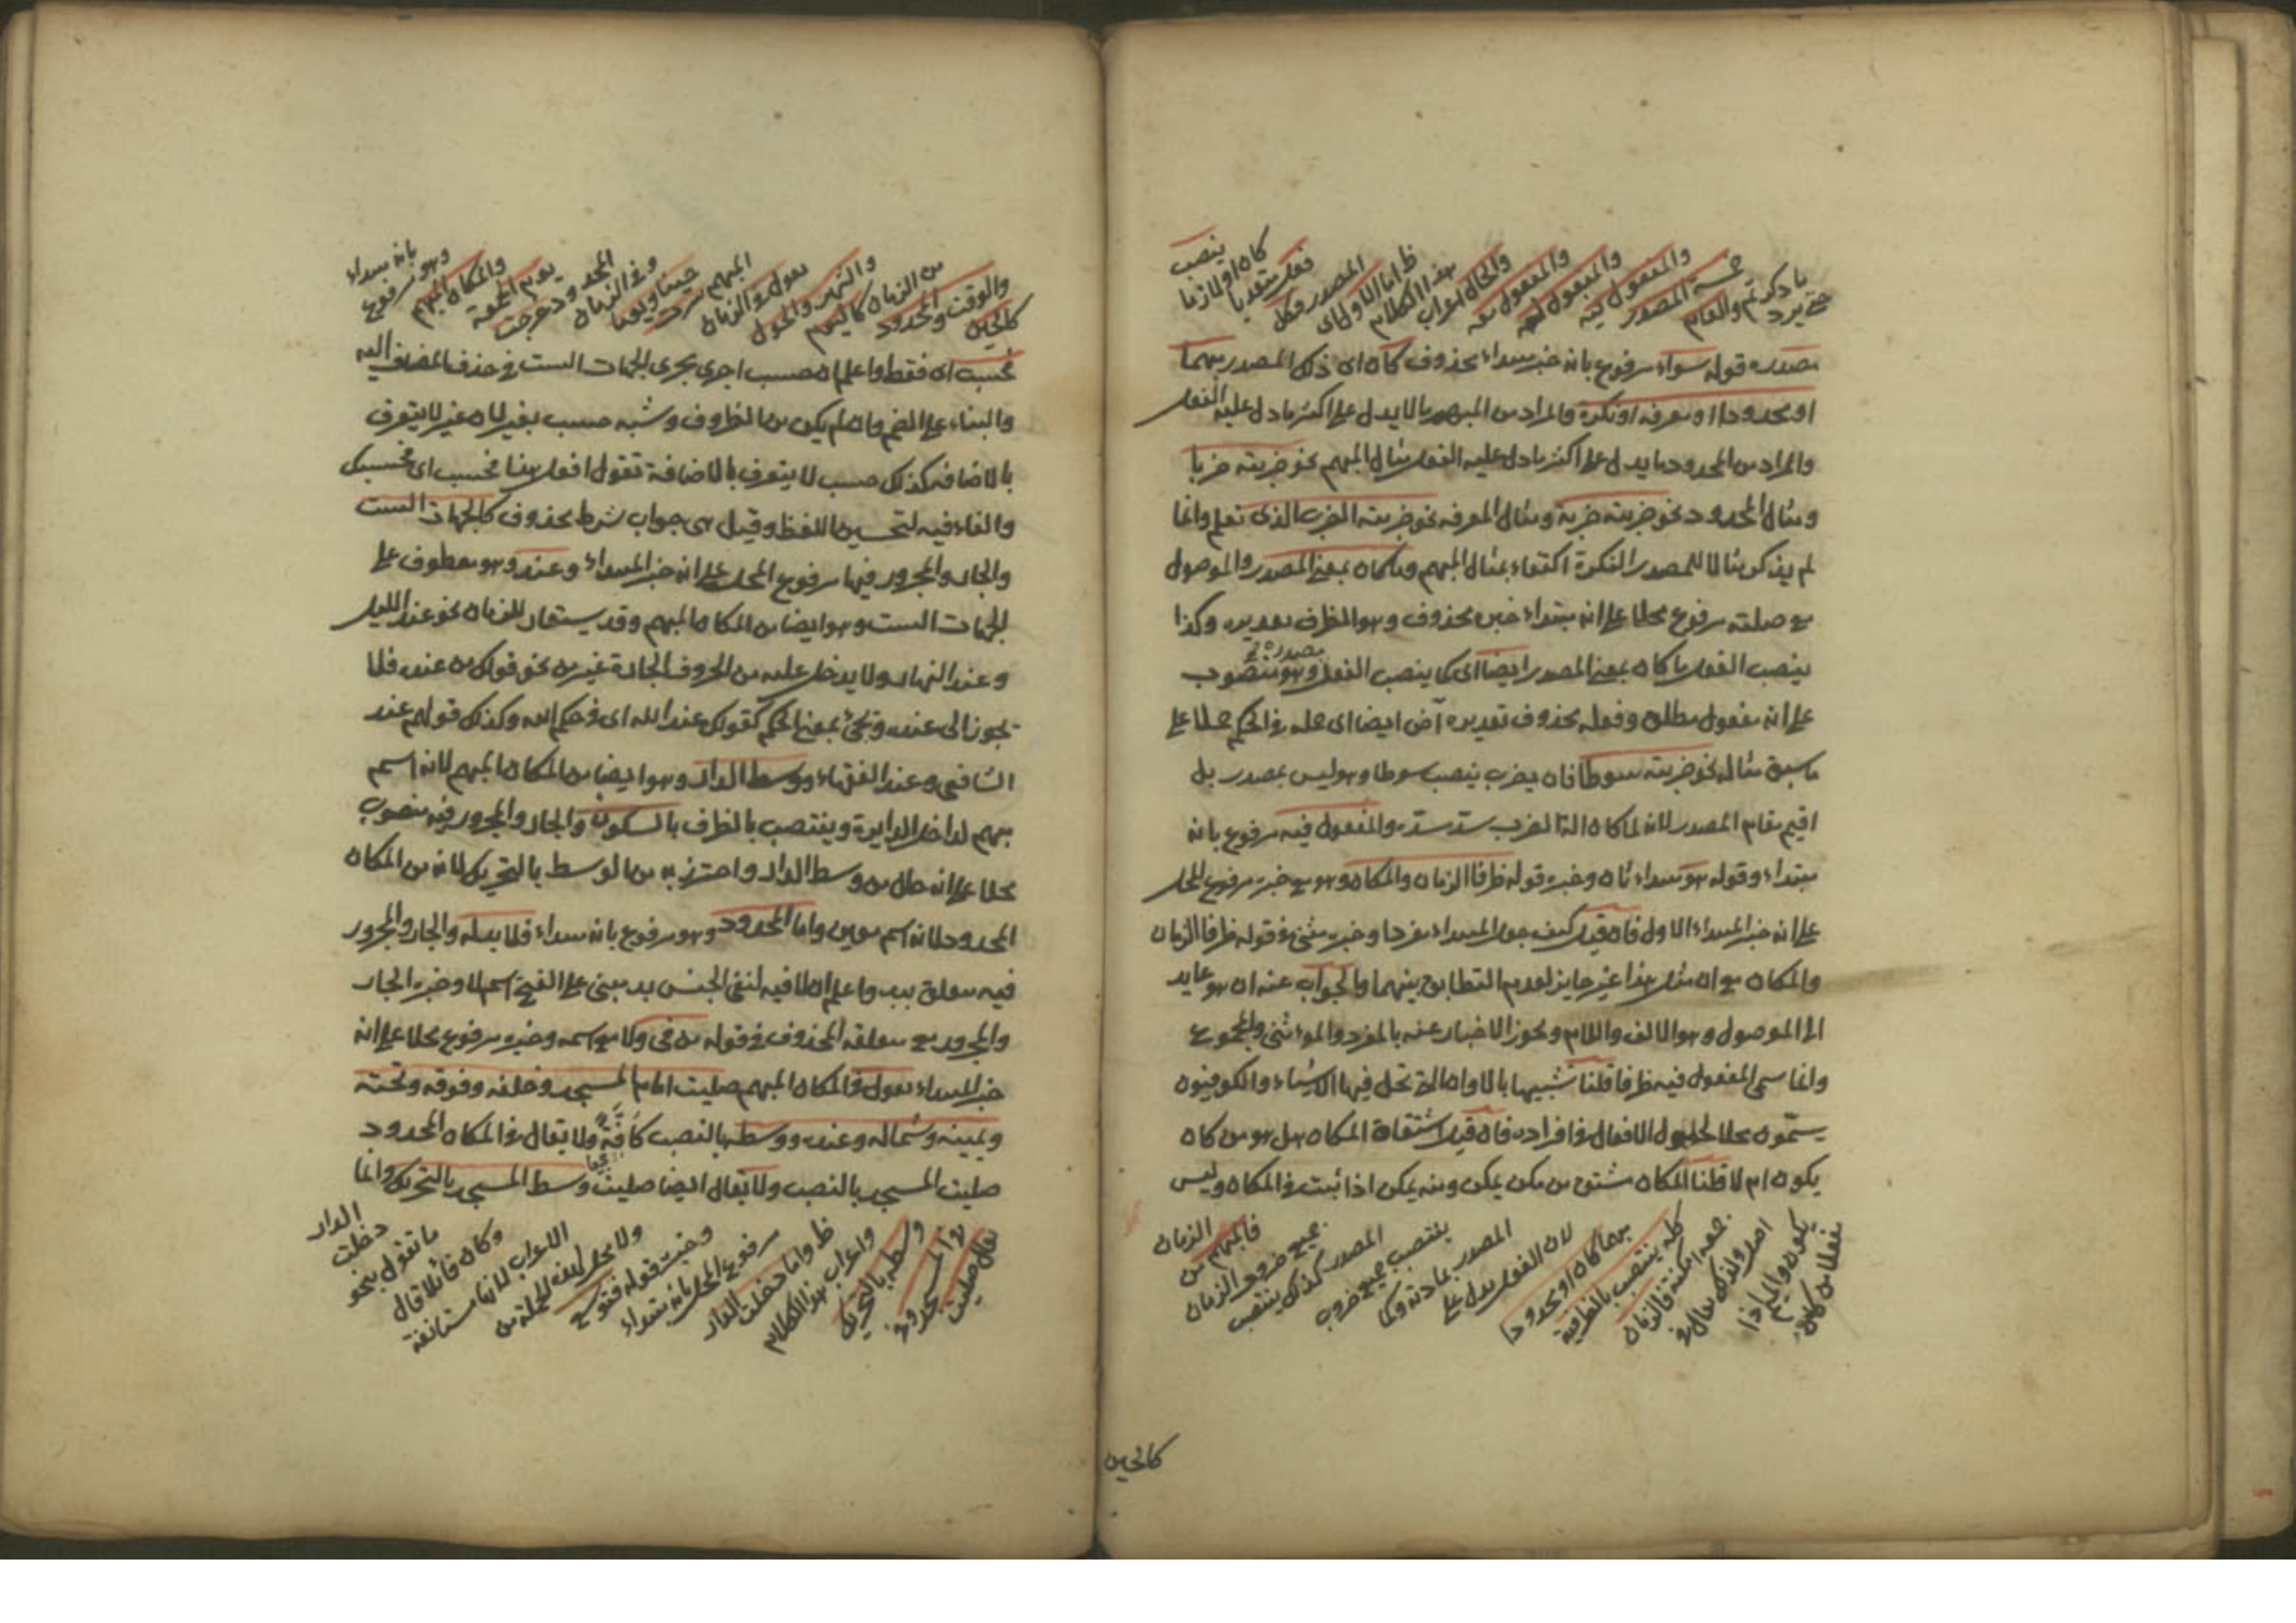 ما ذكرتم والعام
خمسة المصدر
والمفعول فيه
والمفعول له
والمفعول معه
والحال اعراب
هذا الكلام
ظ اما الاول اى
المصدر فكل
فعل متعديا
كان او لازما
ينصب
مصدره قوله سواء مرفوع بانه خبر مبتداء محذوف كان اى ذلك المصدر مبهما
او محدودا او معرفه او نكرة والمراد من المبهم ما لا يدل على اكثر ما دل عليه الفعل
والمراد من المحدود ما يدل على اكثر ما دل عليه الفعل مثال المبهم نحو ضربته ضربا
ومثال المحدود نحو ضربته ضربة ومثال المعرفه نحو ضربته الضرب الذى تعلم وانما
لم يذكر مثالا للمصدر النكرة اكتفاء بمثال المبهم وما كان بمعنى المصدر والموصول
مع صلته مرفوع محلا على انه مبتداء خبره محذوف وهو الظرف تقديره وكذا
ينصب الفعل ما كان بمعنى المصدر ايضا اى كما ينصب الفعل مصدره وهو منصوب
على انه مفعول مطلق وفعله محذوف تقديره آض ايضا اى حمله فى الحكم حملا على
ما سبق مثاله نحو ضربته سوطا فان يضرب ينصب سوطا وهو ليس بمصدر بل
اقيم مقام المصدر لانه لما كان الة الضرب سد مسده والمفعول فيه مرفوع بانه
مبتداء وقوله هو مبتداء ثان وخبره قوله ظرفا الزمان والمكان وهو مع خبره مرفوع المحل
على انه خبر المبتداء الاول فان قيل كيف جعل المبتداء مفردا وخبره مثنى فى قوله ظرفا الزمان
والمكان مع ان مثل هذا غير جايز لعدم التطابق بينهما والجواب عنه ان هو عايد
الى الموصول وهو الالف واللام ويجوز الاخبار عنه بالمفرد والمثنى والمجموع
وانما سمى المفعول فيه ظرفا قلنا تشبيها بالاوانى التى تحل فيها الاشياء والكوفيون
يسمّونه محلا لحلول الافعال فى افراده فان قيل اشتقاق المكان هل هو من كان
يكون ام لا قلنا المكان مشتق من مكن يمكن ومنه يمكن اذا ثبت فى المكان وليس
مفعلا من كان
يكون والميم اذا
اصل والذى يقال فى
جمعه امكنة فالزمان
كله ينتصب بالظرفية
مبهما كان او محدودا
لان الفعل يدل على
المصدر بمادته وكما
ينتصب جميع ضروب
المصدر كذلك ينتصب
جميع ضروب الزمان
فالمبهم من
الزمان
كالحين
كالحين
والوقت والمحدود
من الزمان كاليوم
والشهر والحول
تقول فى الزمان
المبهم سرت
حينا ويوما
وفى الزمان
المحدود خرجت
يوم الجمعة
والمكان المبهم
وهو مرفوع
بانه مبتداء
فحسب اى فقط واعلم ان حسب اجرى مجرى الجهات الست فى حذف المضاف اليه
والبناء على الضم وان لم يكن من الظروف وشبه حسب بغير لان غير لا يتعرف
بالاضافه كذلك حسب لا يتعرف بالاضافة تقول افعل هذا فحسب اى فحسبك
والفاء فيه لتحسين اللفظ وقيل هى جواب شرط محذوف كالجهات الست
والجار والمجرور فيها مرفوع المحل على انه خبر المبتداء وعند وهو معطوف على
الجهات الست وهو ايضا من المكان المبهم وقد يستعار للزمان نحو عند الليل
وعند النهار ولا يدخل عليه من الحروف الجارة غير من نحو قولك من عنده فلا
يجوز الى عنده وتجئ بمعنى الحكم كقولك عند الله اى فى حكم الله وكذلك قولهم عند
الشافعى وعند الفقهاء ووسط الدار وهو ايضا من المكان المبهم لانه اسم
مبهم لداخل الدايرة وينتصب بالظرف بالسكون والجار والمجرور فيه منصوب
محلا على انه حال من وسط الدار واحترز به من الوسط بالتحريك لانه من المكان
المحدود لانه اسم معين واما المحدود وهو مرفوع بانه مبتداء فلا بد له والجار والمجرور
فيه متعلق ببد واعلم ان لا فيه لنفى الجنس بد مبنى على الفتح اسم لا وخبره الجار
والمجرور مع متعلقه المحذوف فى قوله من فى ولا مع اسمه وخبره مرفوع محلا على انه
خبر المبتداء تقول فى المكان المبهم صليت امام المسجد وخلفه وفوقه وتحته
ويمينه وشماله وعنده ووسطه بالنصب كافّة ولا يقال فى المكان المحدود
صليت المسجد بالنصب ولا يقال ايضا صليت وسط المسجد بالتحريك وانما
يقال صليت
فى المسجد وفى
وسطه بالتحريك
واعراب هذا الكلام
ظ واما دخلت الدار
مرفوع المحل بانه مبتداء
وخبره قوله فتوسع
ولا محل لهذه الجملة من
الاعراب لانها مستانفة
وكان قائلا قال
ما تقول نحو
دخلت
الدار